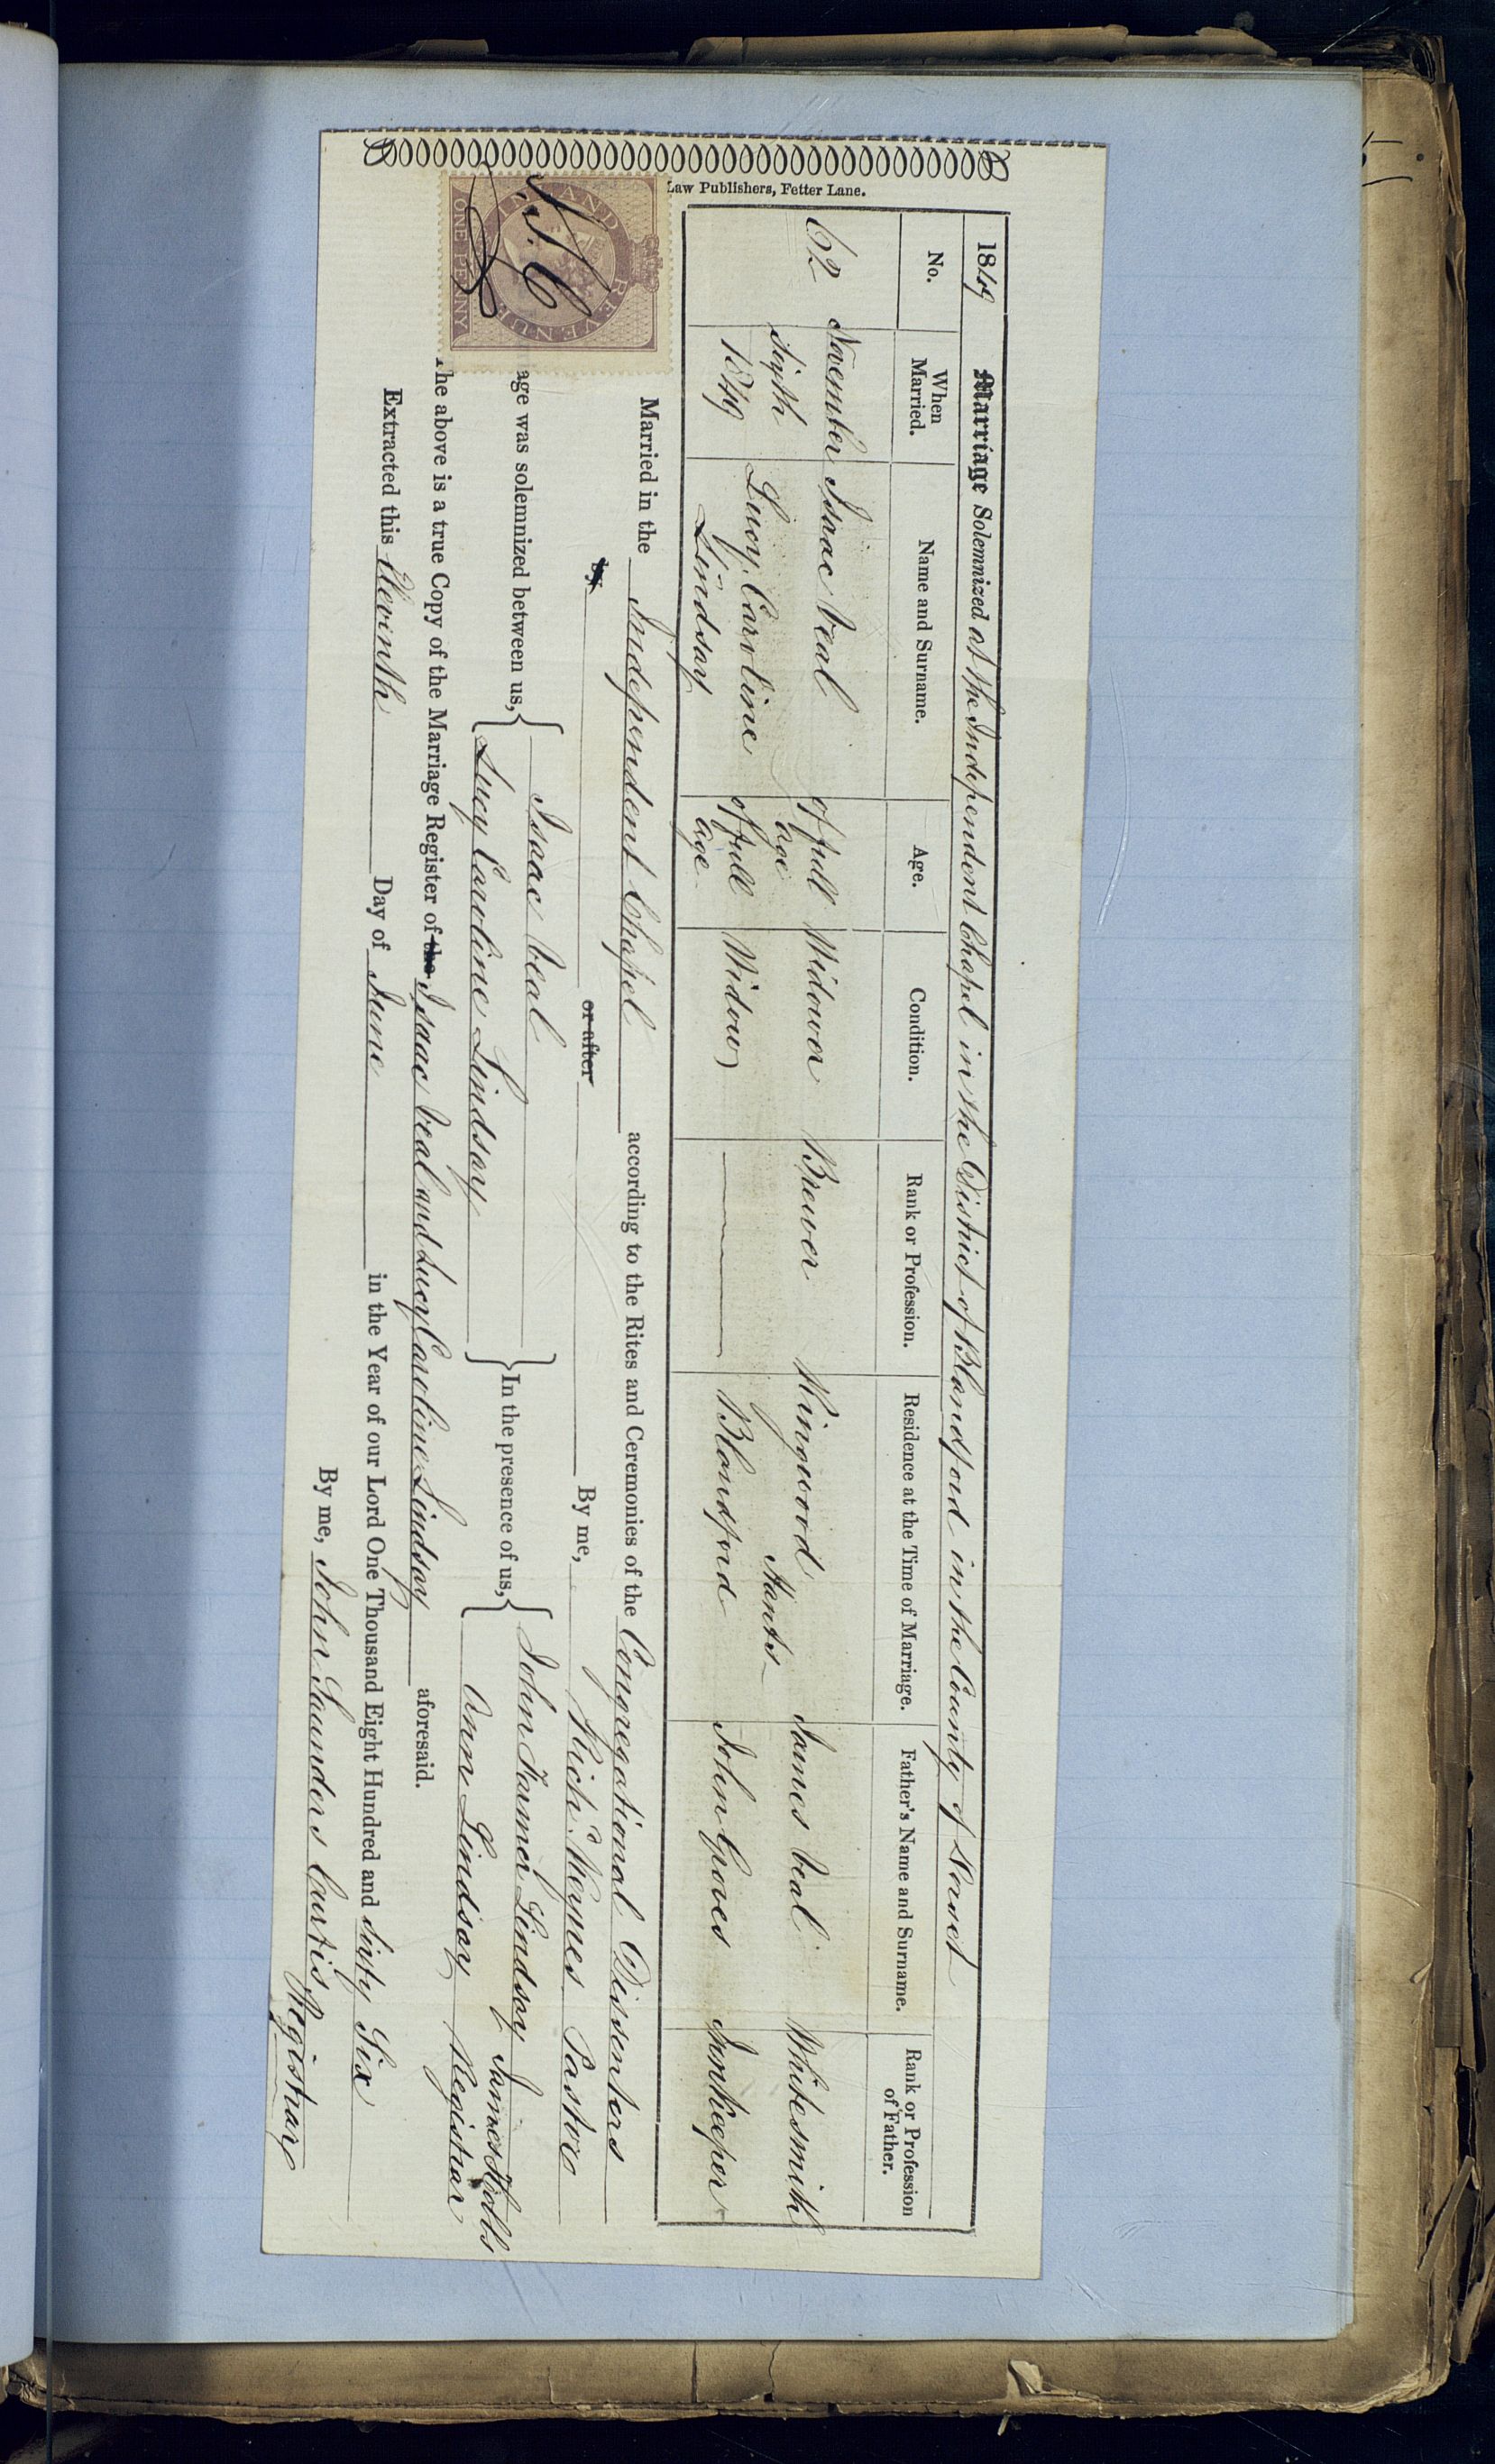 1849 Marriage Solemnized at the Independent Chapel in the District of Blandford in the County of Dorset
No. When Married. Name and Surname. Age. Condition. Rank or Profession. Residence at the Time of Marriage. Father's Name and Surname. Rank or Profession of Father.
62 November Isaac Veal of full Widower Brewer Ringwood James Veal Whitesmith
sixth age Hants
1849 Lucy Caroline of full Widow Blandford John Groves Innkeeper
Lindsay age
Law Publishers, Fetter Lane.
Married in the Independent Chapel according to the Rites and Ceremonies of the Congregational Dissenters
by or after By me, Richd. Keynes Pastor
age was solemnized between us, Isaac Veal In the presence of us, John Farmer Lindsay James Hobbs
Lucy Caroline Lindsay Ann Lindsay Registrar
he above is a true Copy of the Marriage Register of the Isaac Veal and Lucy Caroline Lindsay aforesaid.
Extracted this Elevinth Day of June in the Year of our Lord One Thousand Eight Hundred and Sixty Six
By me, John Saunders Curtis Registrar
AND REVENUE
ONE PENNY
J.S.C